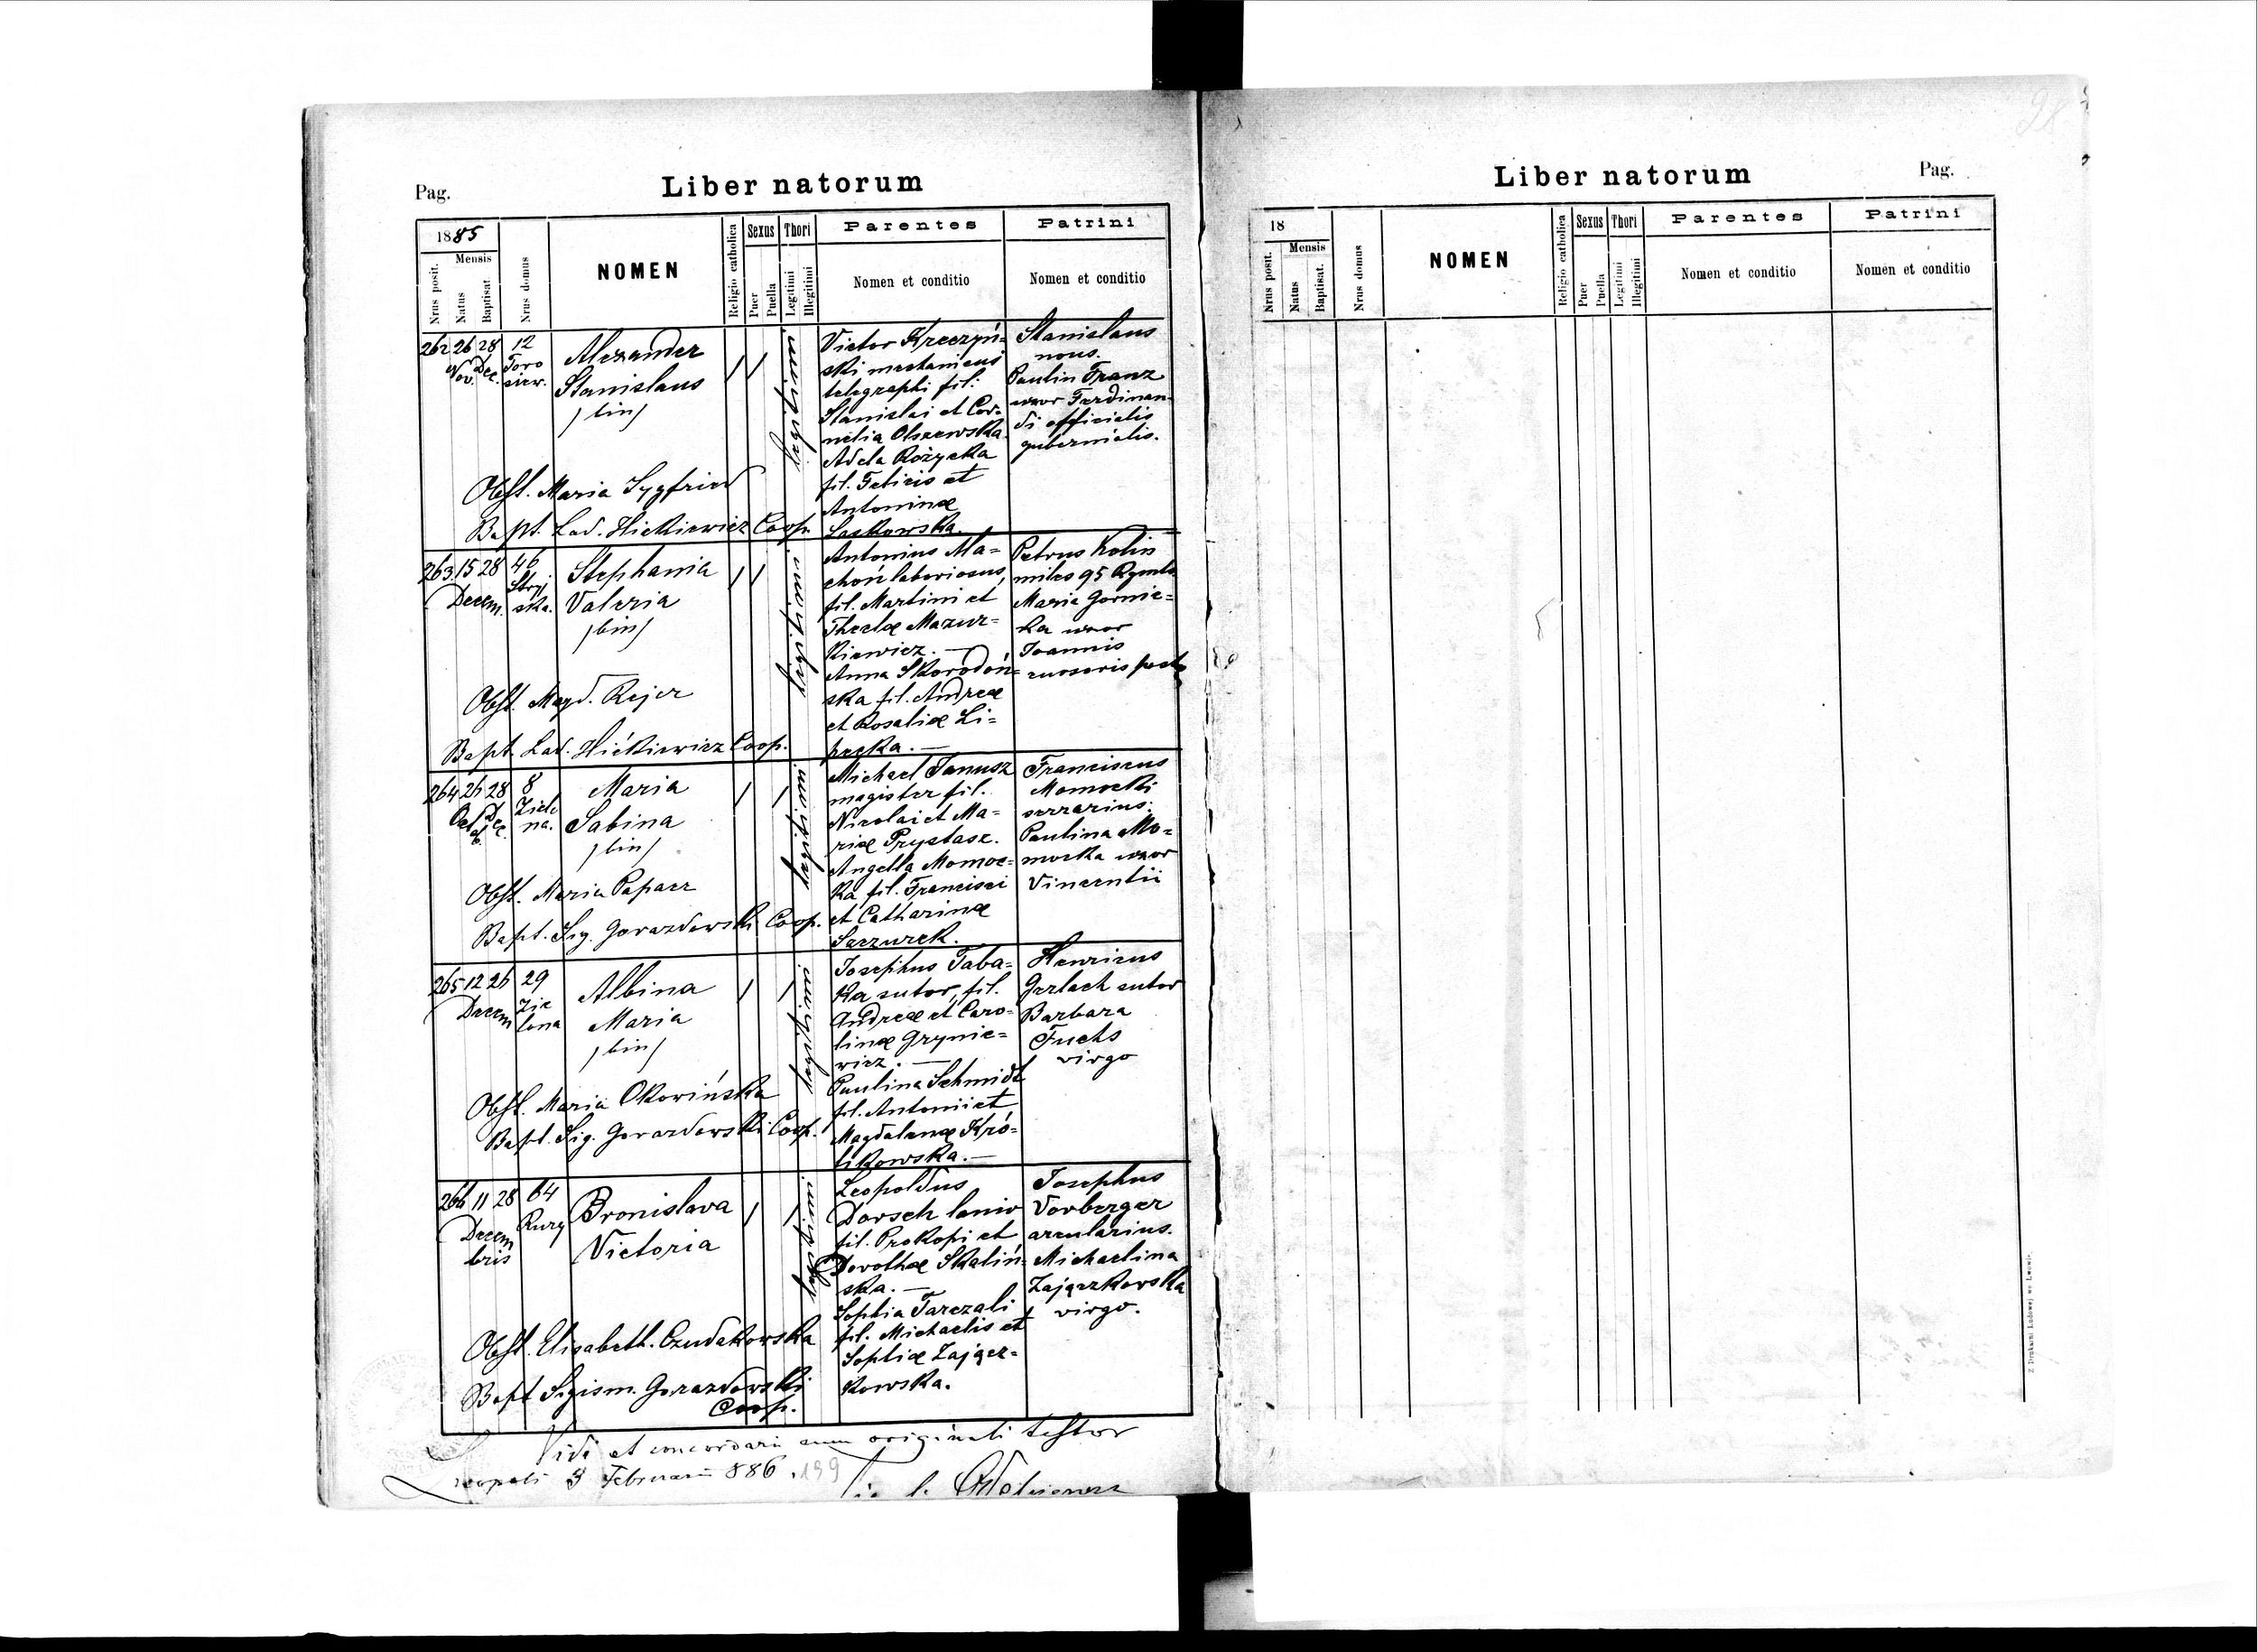 Pag.
Liber natorum
1885
Nrus posit.
Mensis
Natus
Baptisat.
Nrus domus
NOMEN
Religio catholica
Sexus
Puer
Puella
Thori
Legitimi
Illegitimi
Parentes
Nomen et conditio
Patrini
Nomen et conditio
262 26 28 12
Nov. Dec. Toro
siew.
Alexander
Stanislaus
/bin/
legitimus
Victor Kreczyń=
ski mechanicus
telegraphi fil:
Stanislai et Cor=
nelia Olszewska
Adela Rożycka
fil. Felicis et
Antoninæ
Laskowska.
Stanislaus
Paulin Franz
uxor Ferdinan
di officialis
gubernialis.
Obst. Maria Sygfried
Bapt. Lad. Hickiewicz Coop.
263 15 28 46
Decem. Stryj
ska.
Stephania
Valeria
/bin/
Antonius Ma=
choń laboriosus,
fil. Martini et
Theclæ Mazur=
kiewicz. —
Anna Skorodoń=
ska fil. Andreæ
et Rosaliæ Li=
pecka. —
Petrus Kolin
miles 95 Rgmts
Maria Gornic=
ka uxor
Joannis
Obst. Magd. Rejer
Bapt. Lad. Hickiewicz Coop.
264 26 28 8
Octob. Dec. Zielo
na.
Maria
Sabina
/bin/
Michael Janusz
magister fil.
Nicolai et Ma=
riæ Prystasz.
Angella Momoc=
ka fil. Francisci
et Catharinæ
Szczurek.
Franciscus
Momocki
serrarius.
Paulina Mo=
mocka uxor
Vincentii
Obst. Maria Paparz
Bapt. Sig. Gorazdowski Coop.
265 12 26 29
Decem Zie
lona
Albina
Maria
/bin/
Josephus Taba=
ka sutor, fil.
Andreæ et Caro=
linæ Grynie=
wicz. —
Paulina Schmidt
fil. Antonii et
Magdalenæ Kró=
likowska. —
Henricus
Gerlach sutor
Barbara
Fuchs
virgo
Obst. Maria Okowińska
Bapt. Sig. Gorazdowski Coop.
266 11 28 64
Decem
bris
Rury
Bronislava
Victoria
Leopoldus
Dorsch lanio
fil. Prokopi et
Dorothæ Skaliń=
ska. —
Sophia Tarczali
fil. Michaelis et
Sophiæ Zającz=
kowska.
Josephus
Vorberger
arcularius.
Michaelina
Zajączkowska
virgo.
Obst. Elisabeth. Czudakowska
Bapt Sigism. Gorazdowski
Coop.
Vidi et concordare cum originali testor
Leopoli 3 Februarii 886. 199
Liber natorum
Pag.
18
Nrus posit.
Mensis
Natus
Baptisat.
Nrus domus
NOMEN
Religio catholica
Sexus
Puer
Puella
Thori
Legitimi
Illegitimi
Parentes
Nomen et conditio
Patrini
Nomen et conditio
Z Drukarni Ludowej we Lwowie.